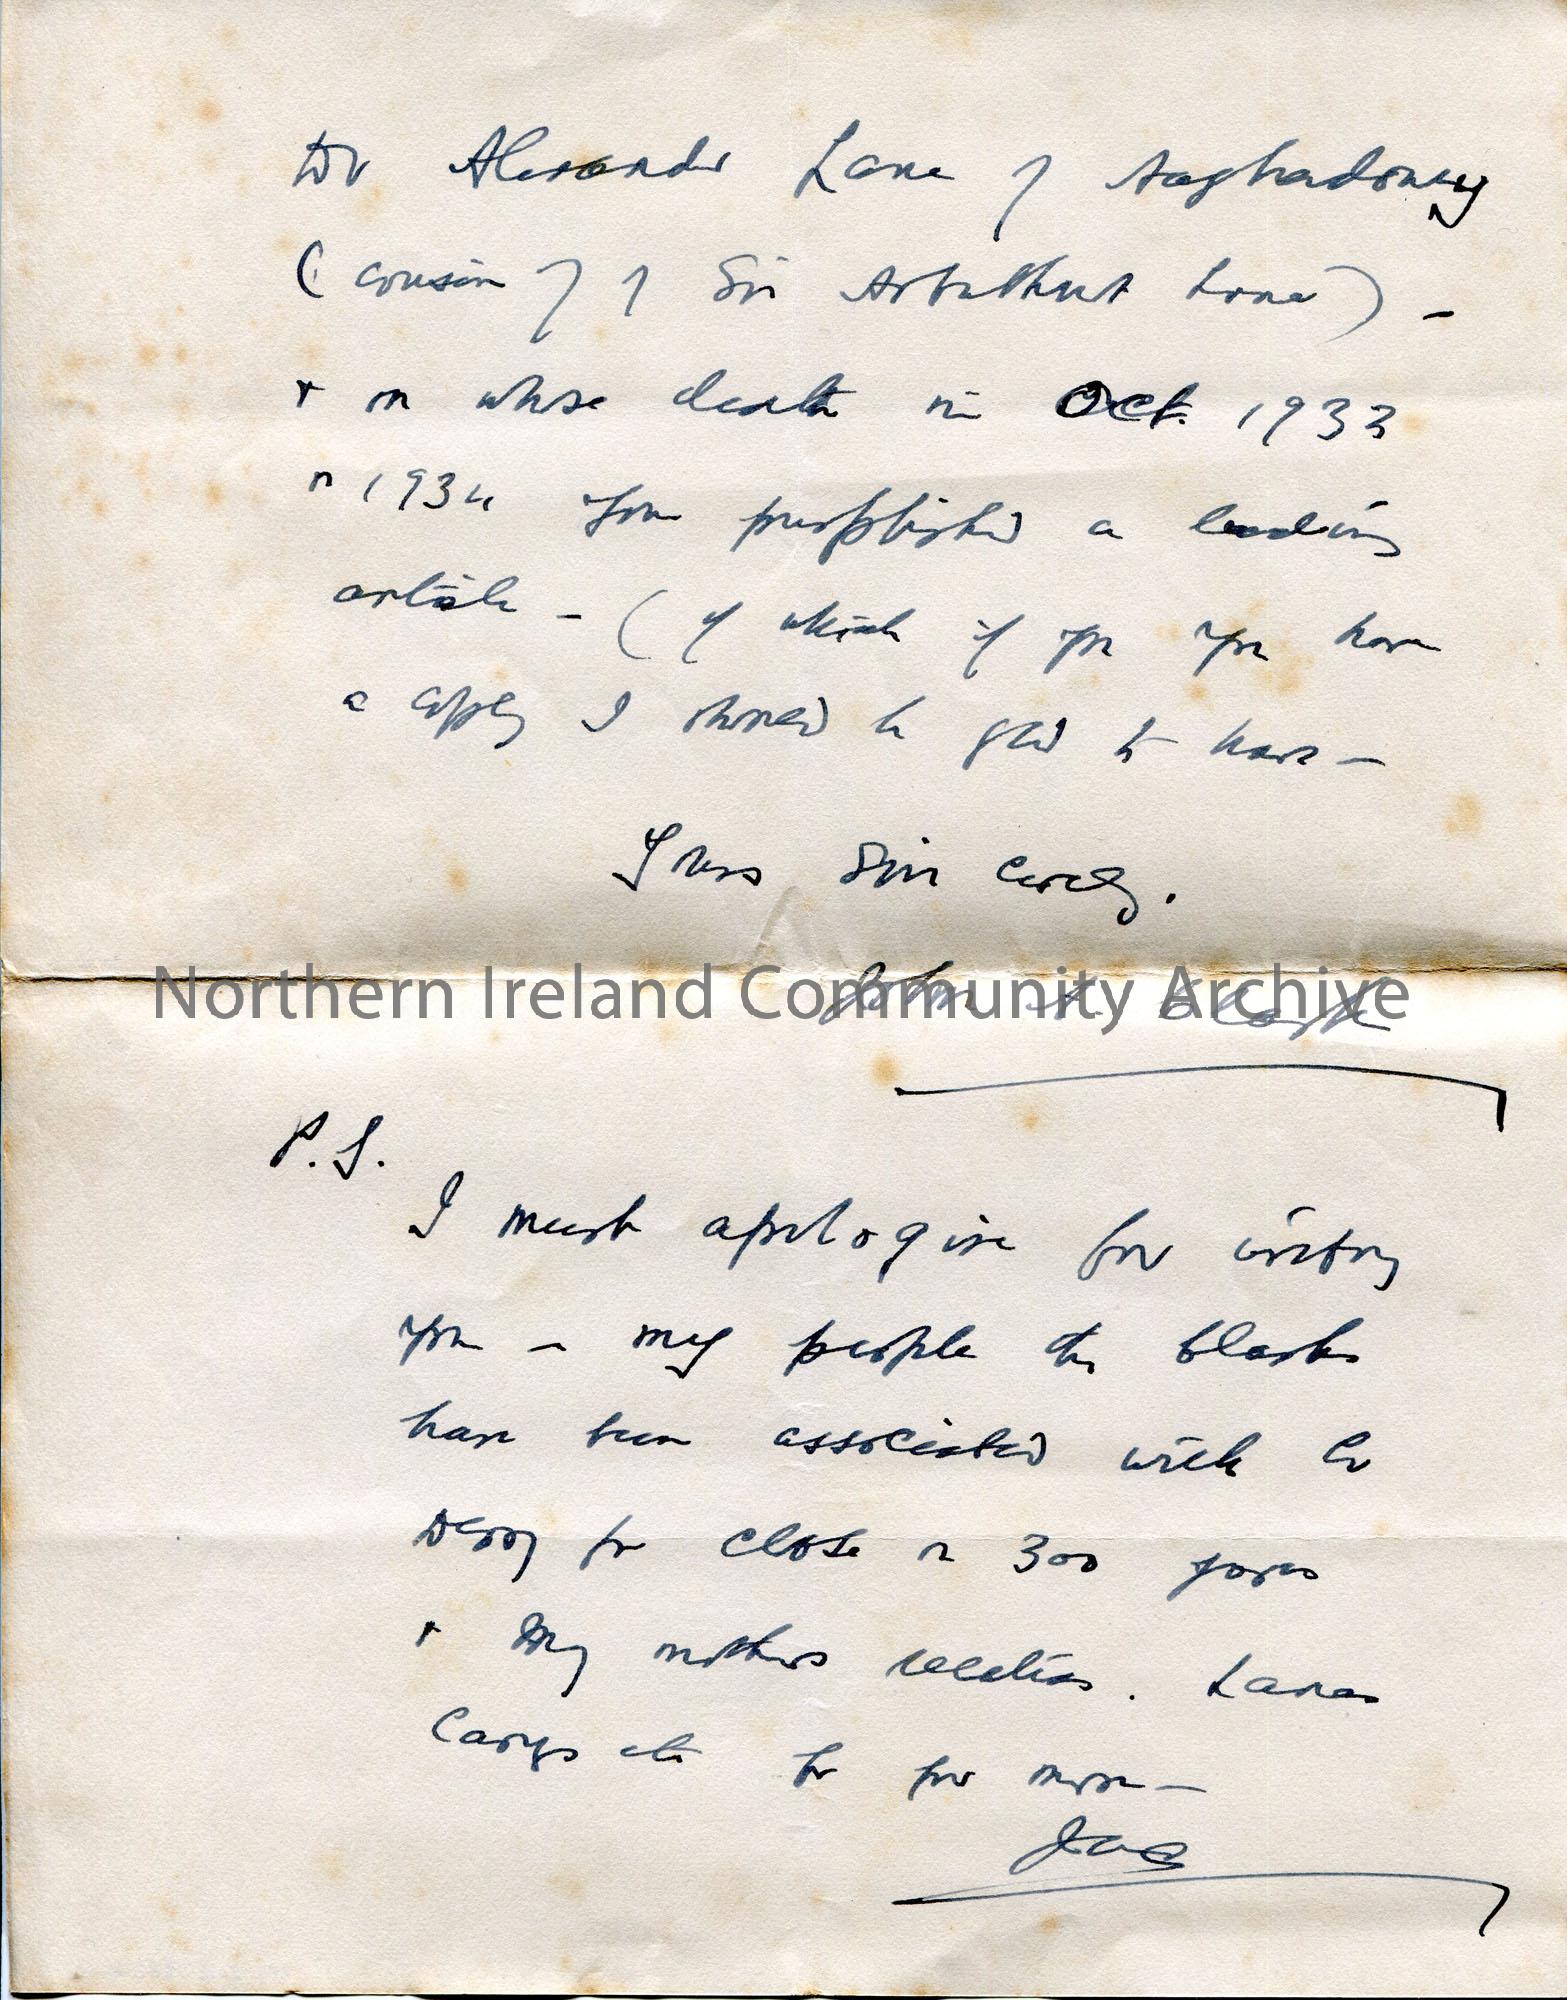 Dr Alexander Lane of Aaghadowey
(cousin of of Sir Arbuthnot Lane) –
+ on whose death in Oct. 1933
or 1934 you published a leading
article – (of which if you you have
a copy I should be glad to have –
Yours Sincerely.
John A. Clark
Northern Ireland Community Archive
P.S.
I must apologise for writing
you – my people the Clarks
have been associated with Co
Derry for close on 300 years
+ My mothers relations. Lanes
Carys etc for far more –
JAC